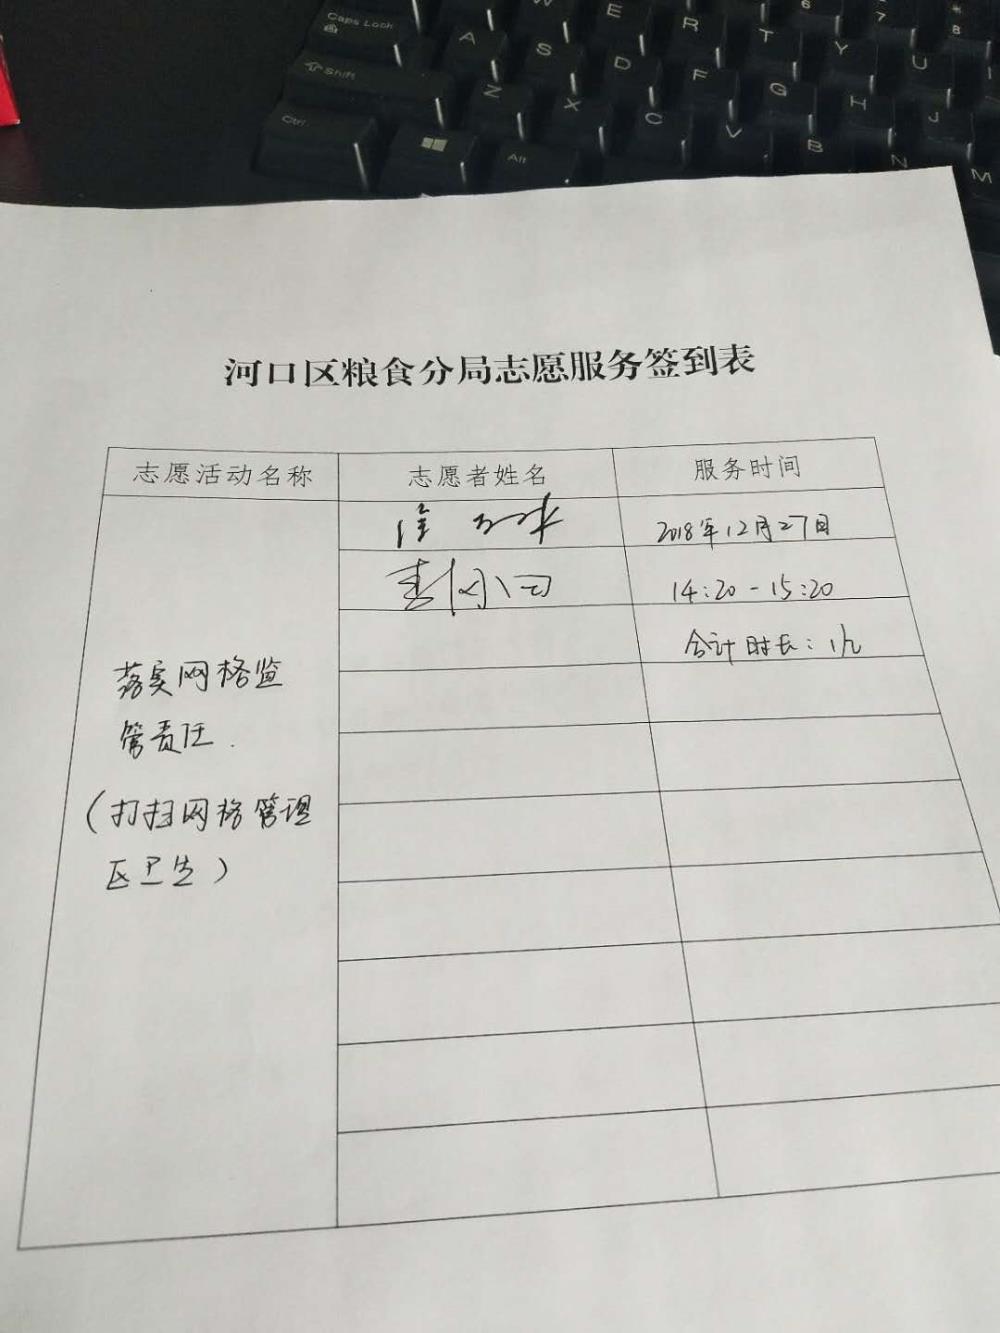 Caps Lock
W
E
R
T
Y
U
6
7
8
A
S
D
F
G
H
J
Shift
Z
X
C
V
B
N
M
Ctrl
Alt
河口区粮食分局志愿服务签到表
志愿活动名称 志愿者姓名 服务时间
2018年12月27日
14:20-15:20
合计时长：1h
落实网格监
管责任.
（打扫网格管理
区卫生）